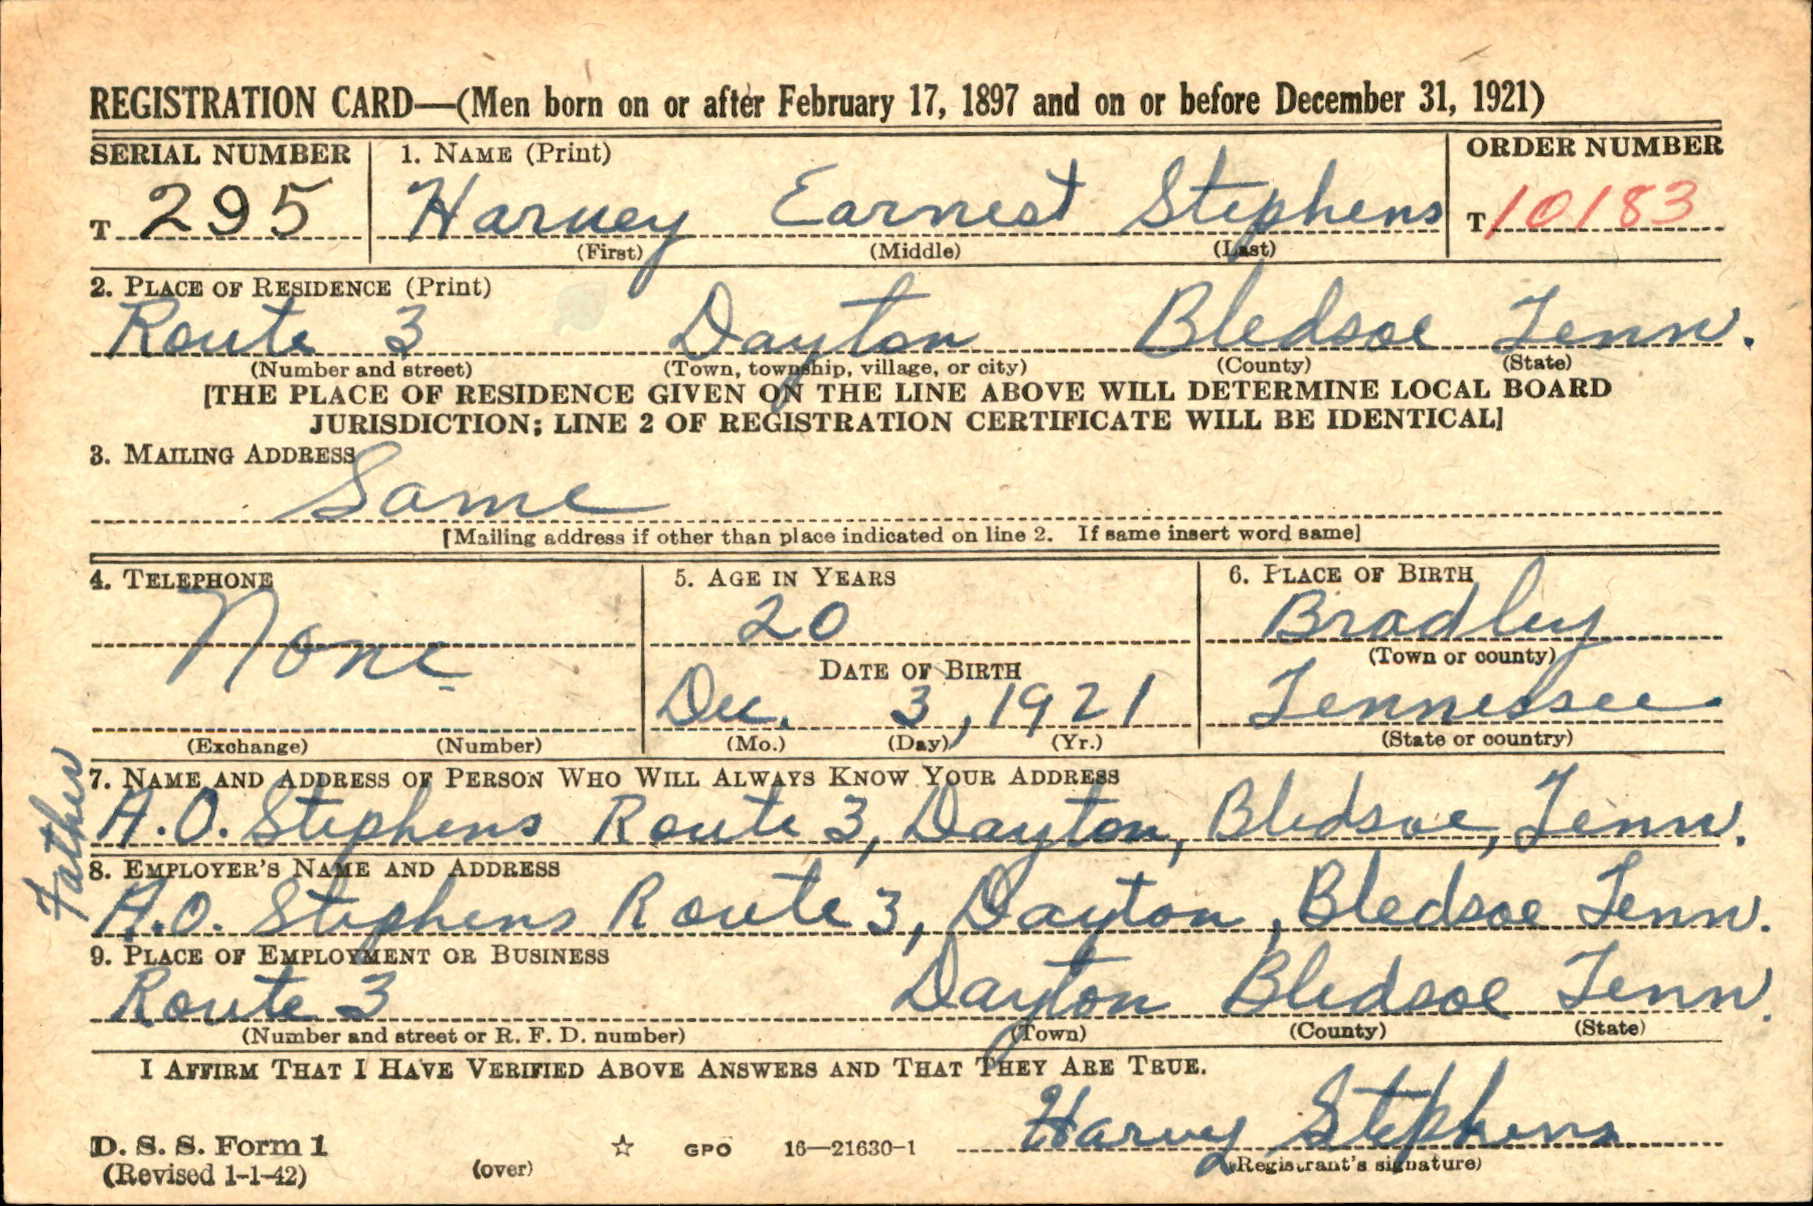 REGISTRATION CARD—(Men born on or after February 17, 1897 and on or before December 31, 1921)
SERIAL NUMBER 1. NAME (Print) ORDER NUMBER
T 295 Harvey Earnest Stephens T 10183
(First) (Middle) (Last)
2. PLACE OF RESIDENCE (Print)
Route 3 Dayton Bledsoe Tenn.
(Number and street) (Town, township, village, or city) (County) (State)
[THE PLACE OF RESIDENCE GIVEN ON THE LINE ABOVE WILL DETERMINE LOCAL BOARD
JURISDICTION; LINE 2 OF REGISTRATION CERTIFICATE WILL BE IDENTICAL]
3. MAILING ADDRESS
Same
[Mailing address if other than place indicated on line 2. If same insert word same]
4. TELEPHONE 5. AGE IN YEARS 6. PLACE OF BIRTH
None 20 Bradley
(Town or county)
DATE OF BIRTH
Dec. 3, 1921 Tennessee.
(Exchange) (Number) (Mo.) (Day) (Yr.) (State or country)
7. NAME AND ADDRESS OF PERSON WHO WILL ALWAYS KNOW YOUR ADDRESS
Father
A.O. Stephens Route 3, Dayton, Bledsoe, Tenn.
8. EMPLOYER'S NAME AND ADDRESS
A.O. Stephens Route 3, Dayton, Bledsoe Tenn.
9. PLACE OF EMPLOYMENT OR BUSINESS
Route 3 Dayton Bledsoe Tenn.
(Number and street or R. F. D. number) (Town) (County) (State)
I AFFIRM THAT I HAVE VERIFIED ABOVE ANSWERS AND THAT THEY ARE TRUE.
Harvy Stephens
D. S. S. Form 1 ☆ GPO 16—21630-1
(Revised 1-1-42) (over) (Registrant's signature)